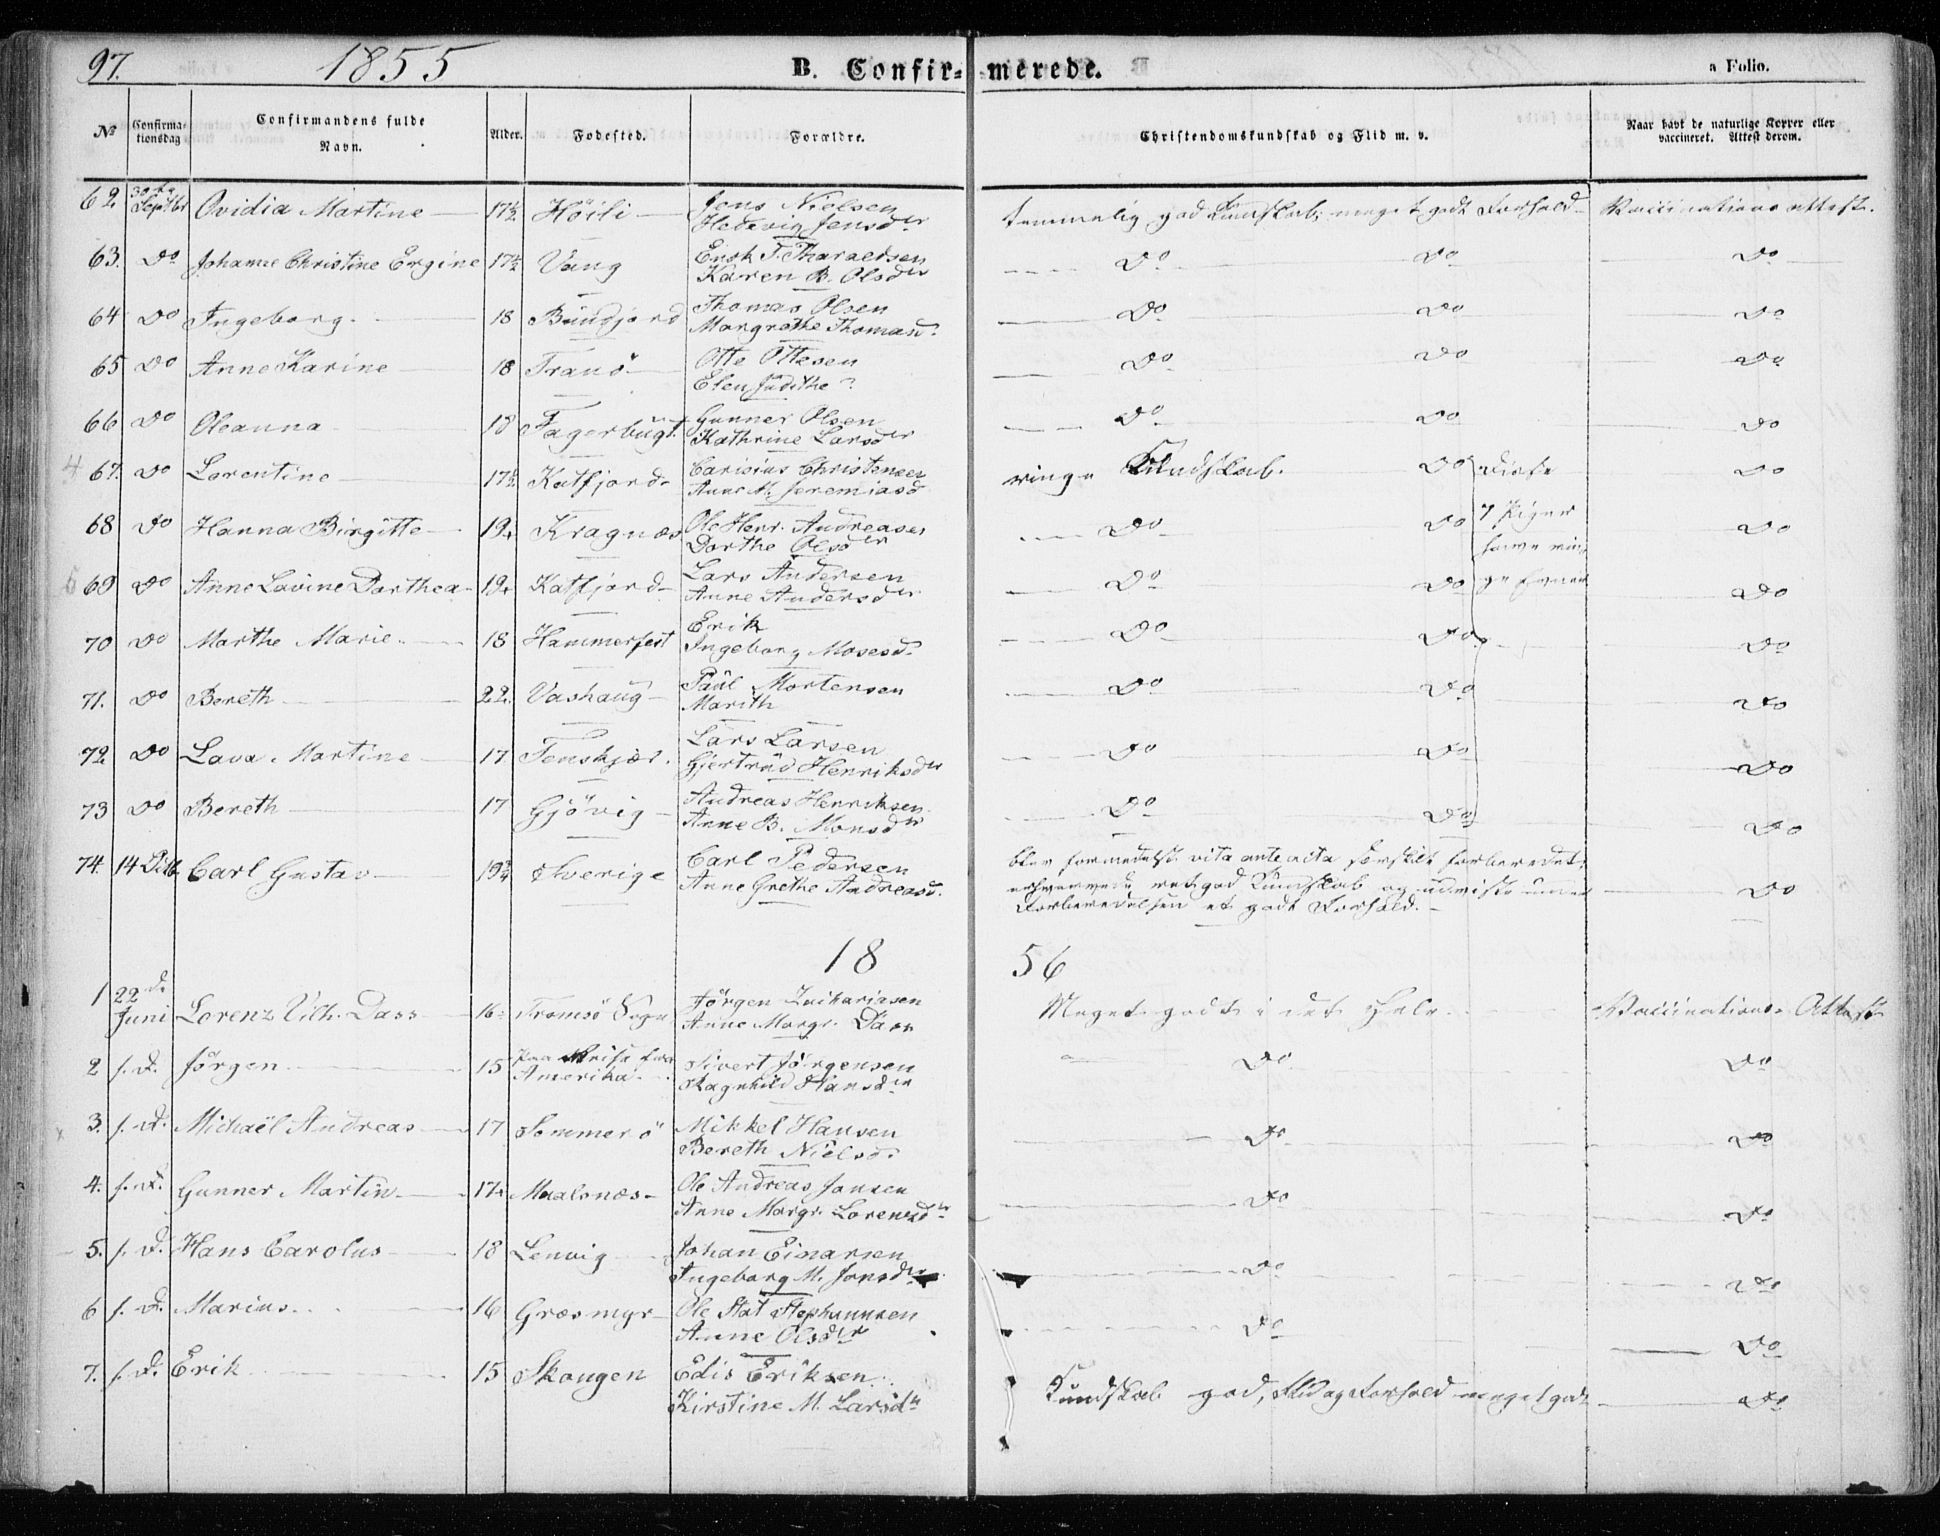 97. 1855 B. Confirmerede. a Folio.
No Confirmationsdag Confirmandens fulde Navn. Alder. Fødested. Forældre. Christendomskundskab og Flid m. v. Naar havt de naturlige Kopper eller vaccineret. Attest derom.
62. 30te Septbr Ovidia Martine 17½ Höili Jens Nielsen
Hedevig Jensdr temmelig god Kundskab; meget godt Forhold Vaccinations attest.
63. Do Johanne Christine Ergine 17½ Vang Enok T. Tharaldsen
Karen B. Olsdr Do Do Do
64 Do Ingeborg 18 Bundjord Thomas Olsen
Margrethe Thomasd. Do Do Do
65 Do Anne Karine 18 Tranö Otte Ottesen
Elen Judithe ? Do Do Do
66 Do Oleanna 18 Fagerbugt Gunner Olsen
Kathrine Larsdr Do Do Do
4 67. Do Lorentine 17½ Katfjord Carisius Christensen
Anne M. Jeremiasd ringe Kundskab. Do Disse Do
68 Do Hanna Birgitte 19. Kragnæs Ole Henr. Andreasen
Dorthe Olsdr Do Do 7 Piger Do
have rin-
69 Do Anne Lavine Dorthea 19. Katfjord Lars Andersen
Anne Andersdr Do Do ge Evner Do
70 Do Marthe Marie 18 Hammerfest Erik
Ingeborg Mosesd. Do Do Do
71. Do Bereth 22. Vashaug Paul Mortensen
Marith Do Do Do
72 Do Lava Martine 17 Tenskjær. Lars Larsen
Gjertrud Henriksdr Do Do Do
73 Do Bereth 17 Gjövig Andreas Henriksen
Anne B. Monsdr Do Do Do
74. 14 Carl Gustav 19¾ Sverige Carl Pedersen
Anne Grethe Andreasd. blev formedelst vita ante acta særskilt forberedet;
erhvervede ret god Kundskab og udviste under Do
Forberedelsen et godt Forhold.
18 56
1 22de
Juni Lorenz Vilh. Dass 16 Tromsö Sogn Jörgen Zachariasen
Anne Margr. Dass Meget godt i det Hele Vaccinations Attest
2 s. D. Jörgen 15 paa Reise fra
Amerika Sivert Jörgensen
Ragnhild Hansdr Do Do
3. s. D. Michaël Andreas 17 Sommerö Mikkel Hansen
Bereth Nielsd. Do Do
4. s. D. Gunner Martin 17. Maalsnæs Ole Andreas Jansen
Anne Margr. Lorenzdr Do Do
5. s. D. Hans Carolus 18 Lenvig Johan Einarsen
Ingeborg M. Jonsdr Do Do
6 s. D. Marius 16 Græsmyr Ole Stephannsen
Anne Olsdr Do Do
7. s. D. Erik 15 Skougen Edis Eriksen
Kirstine M. Larsdr Kundskab god, Flid og Forhold meget godt Do